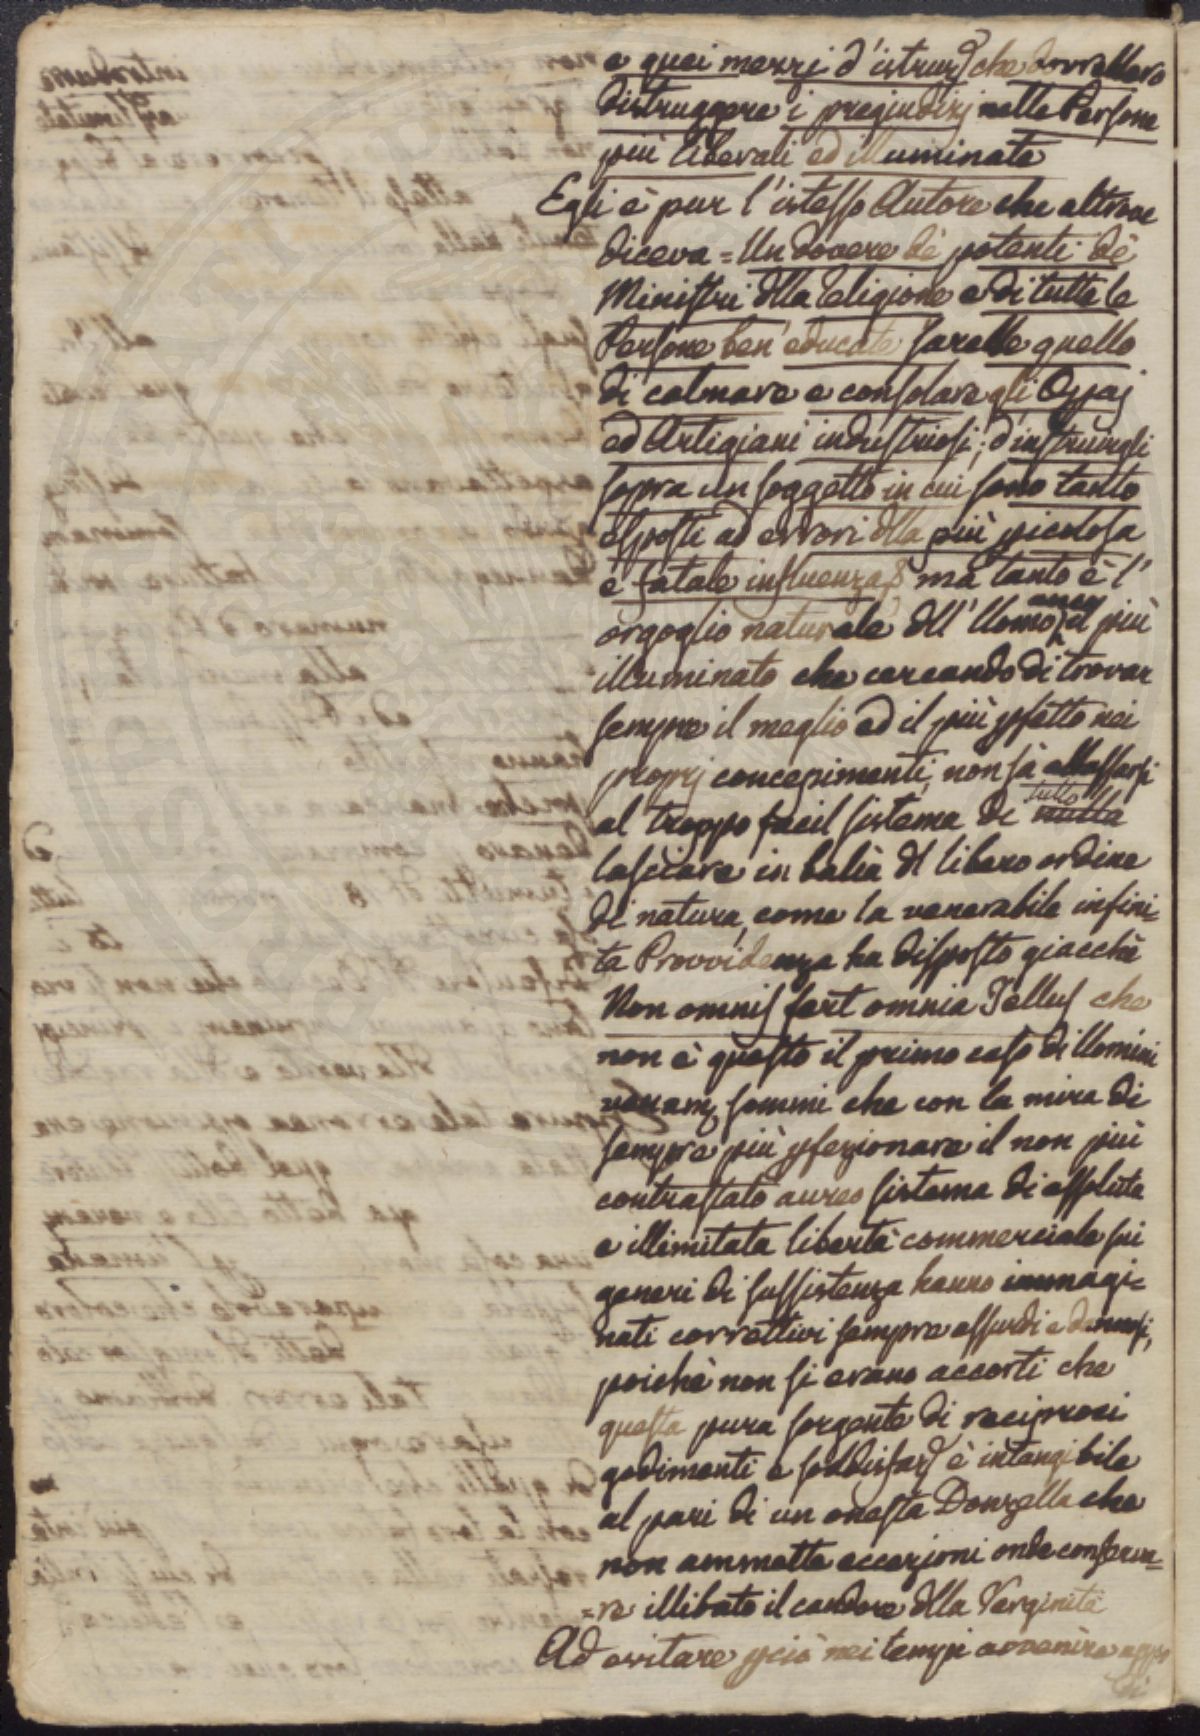 e quei mezzj d'istruz che dovrebbero
distruggere i pregiudizj nelle Persone
più liberali ed illuminate
Egli è pur l'istesso Autore che altrove
diceva = Un dovere dè potenti dè
Ministri dlla Religione e di tutte le
Persone ben' educate sarebbe quello
di calmare e consolare gli Opaj
ed Artigiani industriosi; d'instruirgli
sopra un soggetto in cui sono tanto
esposti ad errori dlla più picolosa
e fatale influenza ma tanto è l'
orgoglio naturale dll' Uomo anco il più
illuminato che cercando di trovar
sempre il meglio ed il più pfetto nei
proprj concepimenti, non sà abbassarsi
al troppo facil sistema di tutto nulla
lasciare in balìa dl libero ordine
di natura, come la venerabile infini-
ta Provvidenza ha disposto giacchè
Non omnis fert omnia Tellus che
non è questo il primo caso di Uomini
sommi che con la mira di
sempre più pfezionare il non più
contrastato aureo sistema di assoluta
e illimitata libertà commerciale sui
generi di sussistenza hanno immagi-
nati correttivi sempre assurdi e dannosi,
poichè non si erano accorti che
questa pura sorgente di reciproci
godimenti e soddisfaz è intangibile
al pari di un onesta Donzella che
non ammette eccezioni onde conserva-
=re illibato il candore dlla Verginità
Ad evitare pciò nei tempi avvenire
di